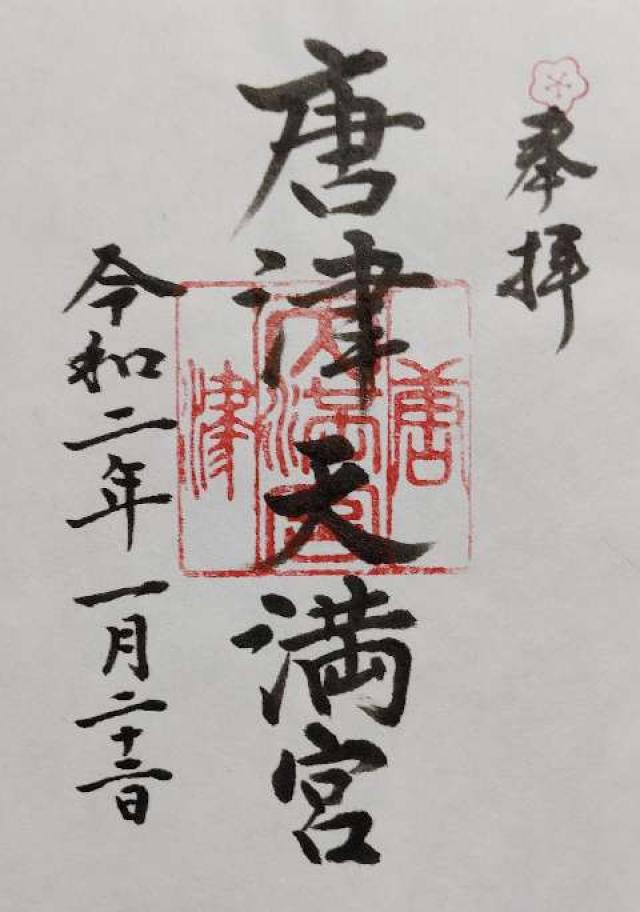 奉拝
唐津天満宮
唐
天満宮
津
令和二年一月二十二日